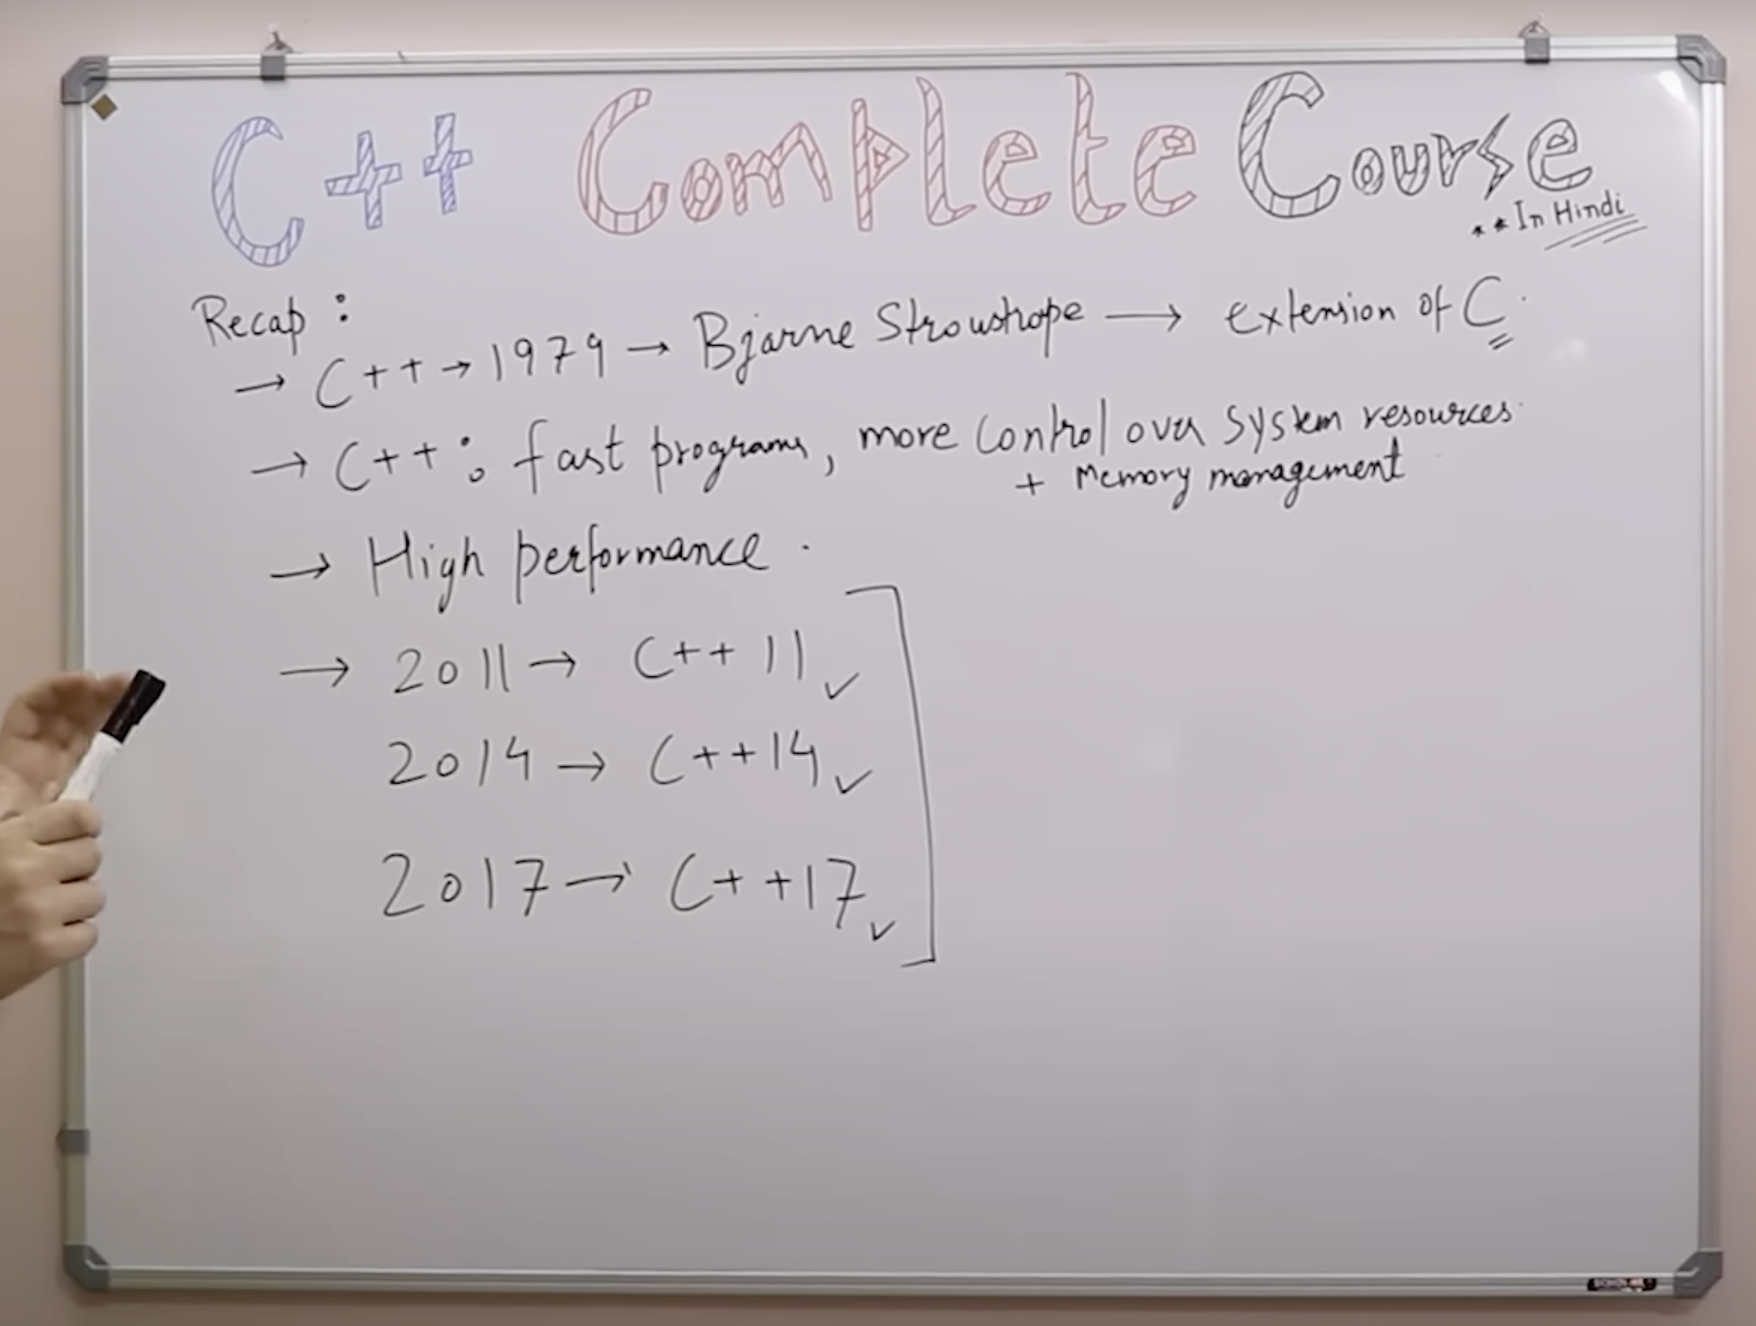 C++ Complete Course
**In Hindi
Recap:
→ C++ → 1979 → Bjarne Stroustrope → extension of C.
→ C++: fast programs, more control over system resources
+ Memory management
→ High performance.
→ 2011 → C++ 11 ✓
2014 → C++14 ✓
2017 → C++17 ✓